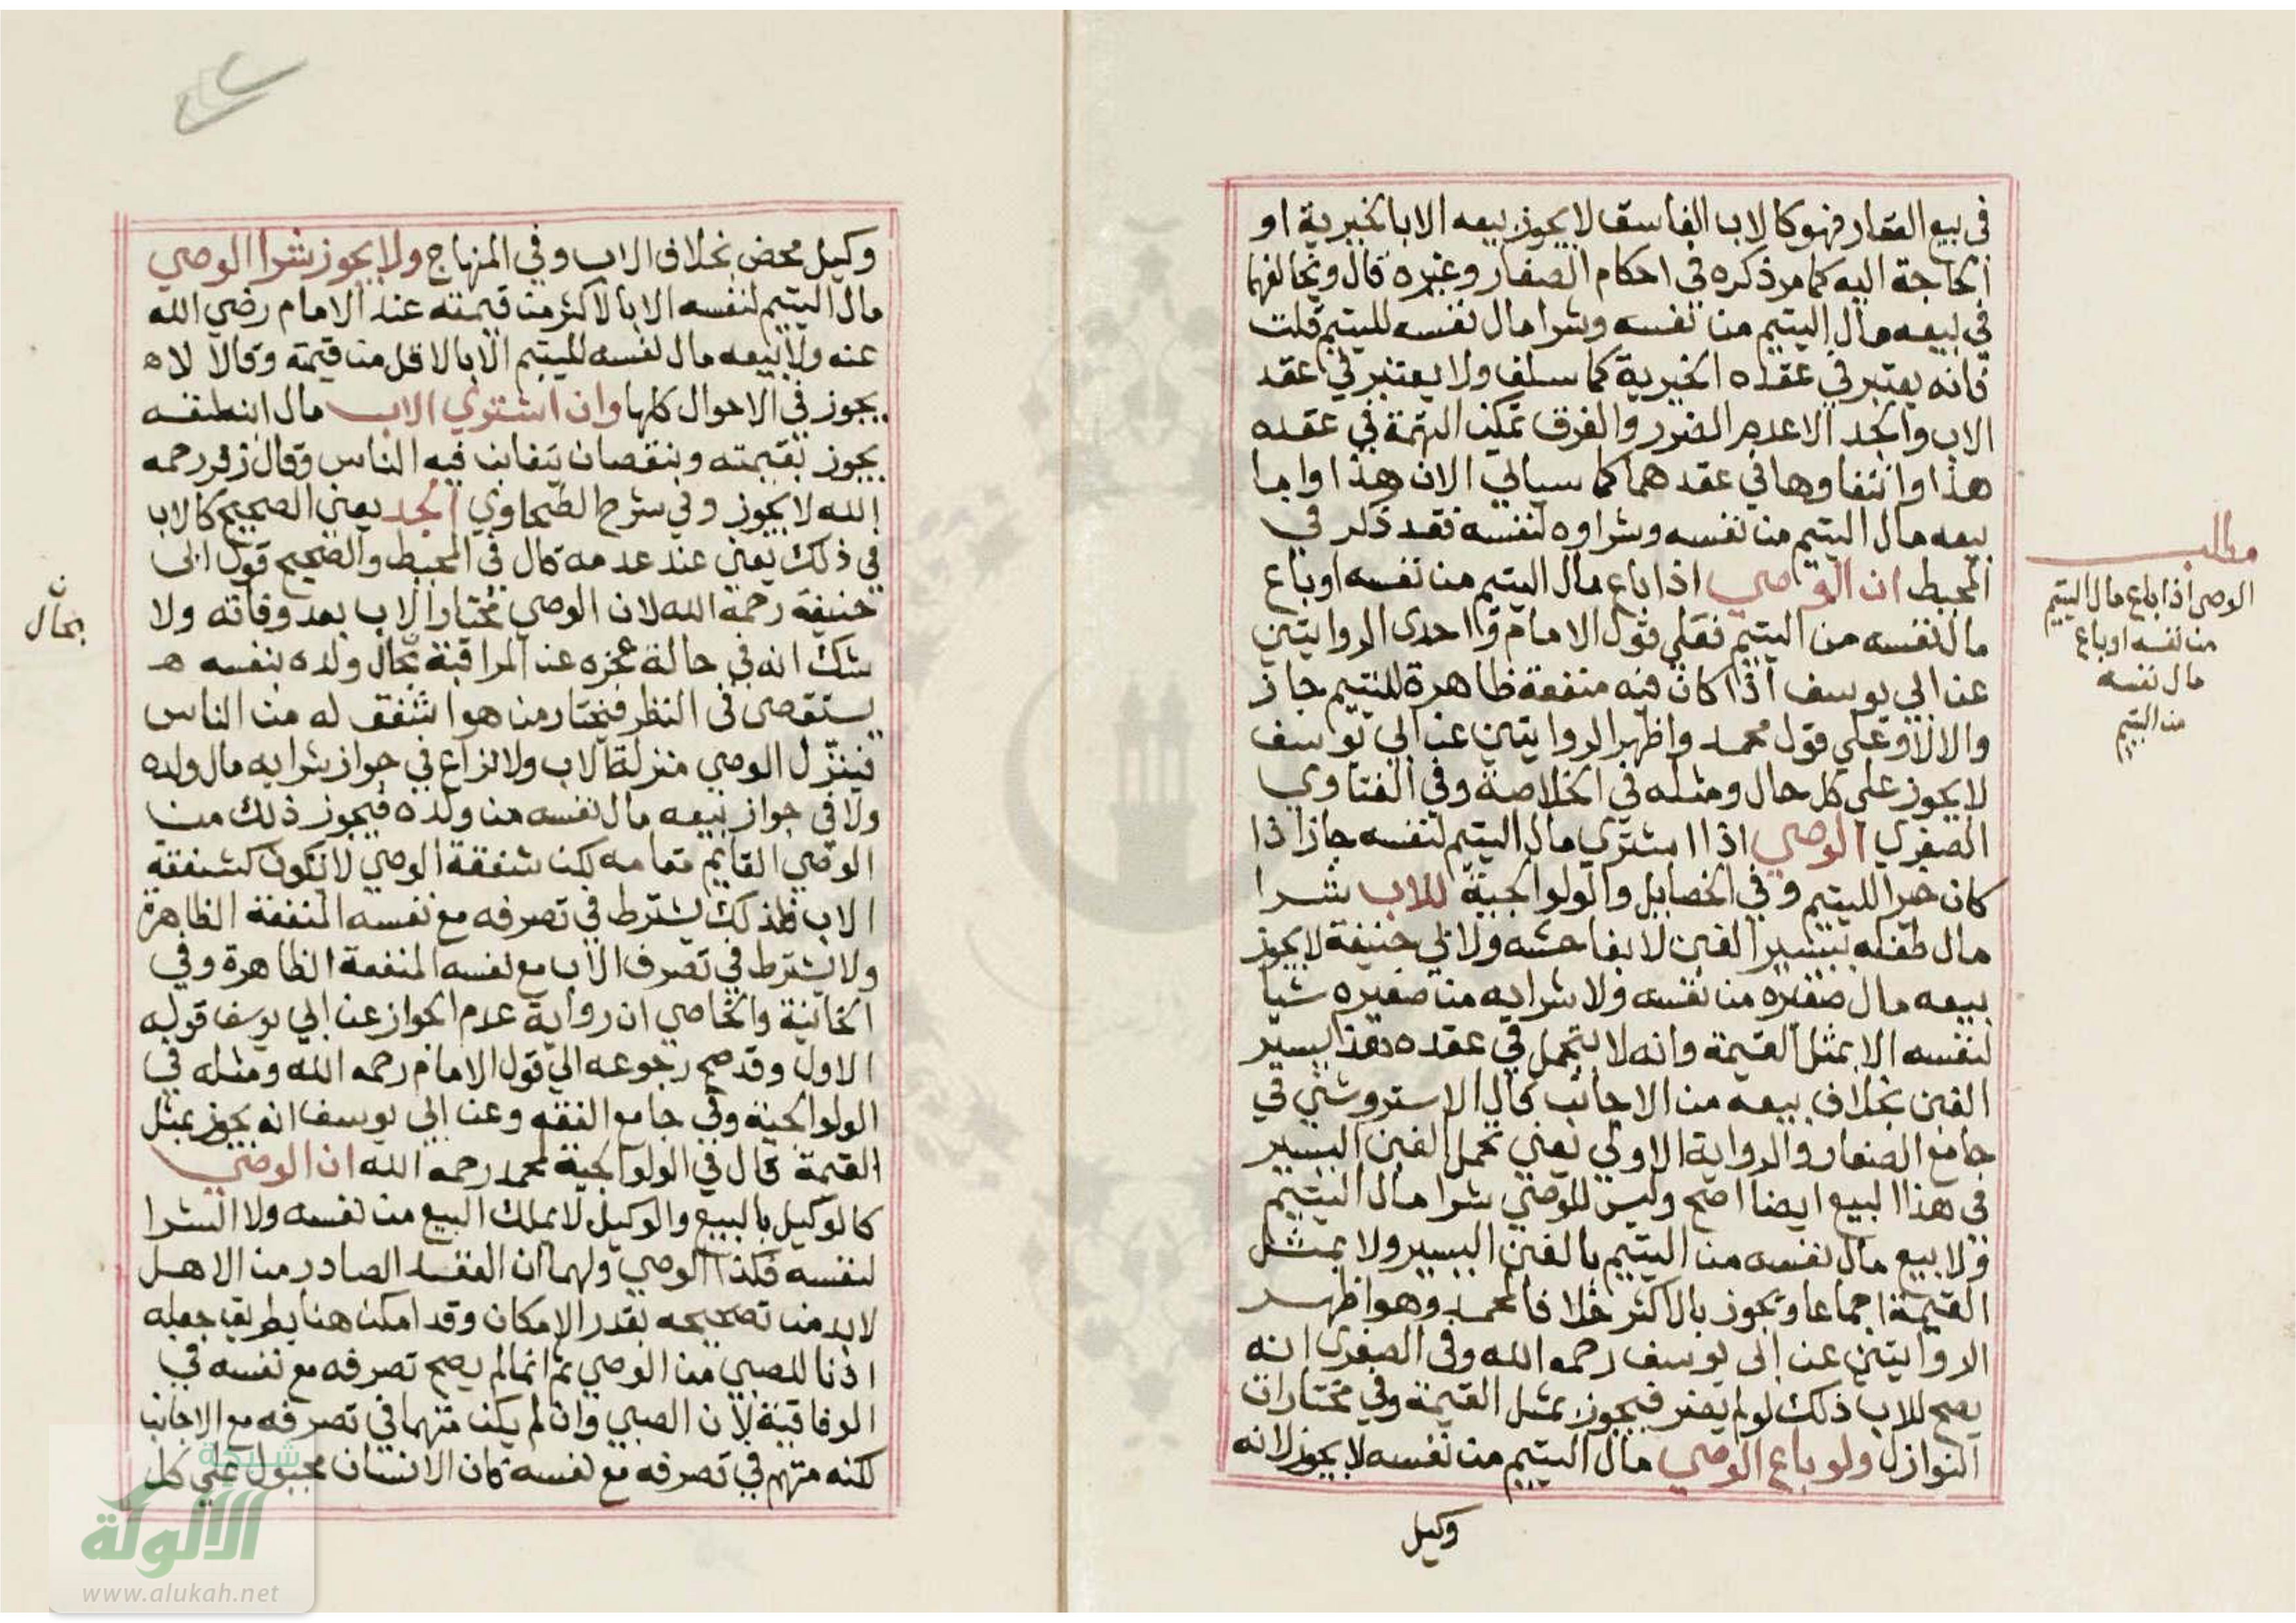 في بيع العقار فهو كالاب الفاسق لا يجوز بيعه الا بالخيرية او
الحاجة اليه كما مر ذكره في احكام الصغار وغيره قال ويخالفهما
في بيعه مال اليتيم من نفسه وشرا مال نفسه لليتيم قلت
فانه يعتبر في عقده الخيرية كما سلف ولا يعتبر في عقد
الاب والجد الا عدم الضرر والفرق تمكن التهمة في عقده
هذا وانتفاوها في عقدهما كما سياتي الان هذا واما
بيعه مال اليتيم من نفسه وشراوه لنفسه فقد ذكر في
المحيط ان الوصي اذا باع مال اليتيم من نفسه او باع
مال نفسه من اليتيم فعلي قول الامام واحدى الروايتين
عن ابي يوسف اذا كان فيه منفعة ظاهرة لليتيم جاز
والا لا وعلي قول محمد واظهر الروايتين عن ابي يوسف
لا يجوز علي كل حال ومثله في الخلاصة وفي الفتاوي
الصغري الوصي اذا اشتري مال اليتيم لنفسه جاز اذا
كان خيرا لليتيم وفي الخصايل والولوالجية للاب شرا
مال طفله بيسير الغبن لا بفاحشه ولابي حنيفة لا يجوز
بيعه مال صغيره من نفسه ولا شرايه من صغيره شيا
لنفسه الا بمثل القيمة وانه لا يتحمل في عقده هذا يسير
الغبن بخلاف بيعه من الاجانب قال الاستروشني في
جامع الصغار والرواية الاولي يعني تحمل الغبن اليسير
في هذا البيع ايضا اصح وليس للوصي شرا مال اليتيم
ولا بيع مال نفسه من اليتيم بالغبن اليسير ولا بمثل
القيمة اجماعا ويجوز بالاكثر خلافا لمحمد وهو اظهر
الروايتين عن ابي يوسف رحمه الله وفي الصغرى انه
يصح للاب ذلك لو لم يضر فيجوز بمثل القيمة وفي مختارات
النوازل ولو باع الوصي مال اليتيم من نفسه لا يجوز لانه
وكيل
مطلب
الوصي اذا باع مال اليتيم
من نفسه او باع
مال نفسه
من اليتيم
وكيل محض بخلاف الاب وفي المنهاج ولا يجوز شرا الوصي
مال اليتيم لنفسه الا بالاكثر من قيمته عند الامام رضي الله
عنه ولا بيعه مال نفسه لليتيم الا بالاقل من قيمته وقالا لا
يجوز في الاحوال كلها وان اشتري الاب مال ابنه لنفسه
يجوز بقيمته وبنقصان يتغابن فيه الناس وقال زفر رحمه
الله لا يجوز وفي شرح الطحاوي الجد يعني الصحيح كالاب
في ذلك يعني عند عدمه قال في المحيط والصحيح قول ابي
حنيفة رحمة الله لان الوصي مختار الاب بعد وفاته ولا
شك انه في حالة عجزه عن المراقبة بحال ولده بنفسه
يستقصى في النظر فيختار من هو اشفق له من الناس
فينزل الوصي منزلة الاب ولا نزاع في جواز شرايه مال ولده
ولا في جواز بيعه مال نفسه من ولده فيجوز ذلك من
الوصي القايم مقامه لكن شفقة الوصي لا تكون كشفقة
الاب فلذلك يشترط في تصرفه مع نفسه المنفعة الظاهرة
ولا يشترط في تصرف الاب مع نفسه المنفعة الظاهرة وفي
الخانية والخاصي ان رواية عدم الجواز عن ابي يوسف قوله
الاول وقد صح رجوعه الي قول الامام رحمه الله ومثله في
الولوالجية وفي جامع الفقه وعن ابي يوسف انه يجوز بمثل
القيمة قال في الولوالجية لمحمد رحمه الله ان الوصي
كالوكيل بالبيع والوكيل لا يملك البيع من نفسه ولا الشرا
لنفسه فكذا الوصي ولهما ان العقد الصادر من الاهل
لا بد من تصحيحه بقدر الامكان وقد امكن هنا بطريق جعله
اذنا للصبي من الوصي ثم انما لم يصح تصرفه مع نفسه في
الوفاقية لان الصبي وان لم يكن متهما في تصرفه مع الاجانب
لكنه متهم في تصرفه مع نفسه كان الانسان مجبول علي كل
بحال
شبكة
الألوكة
www.alukah.net